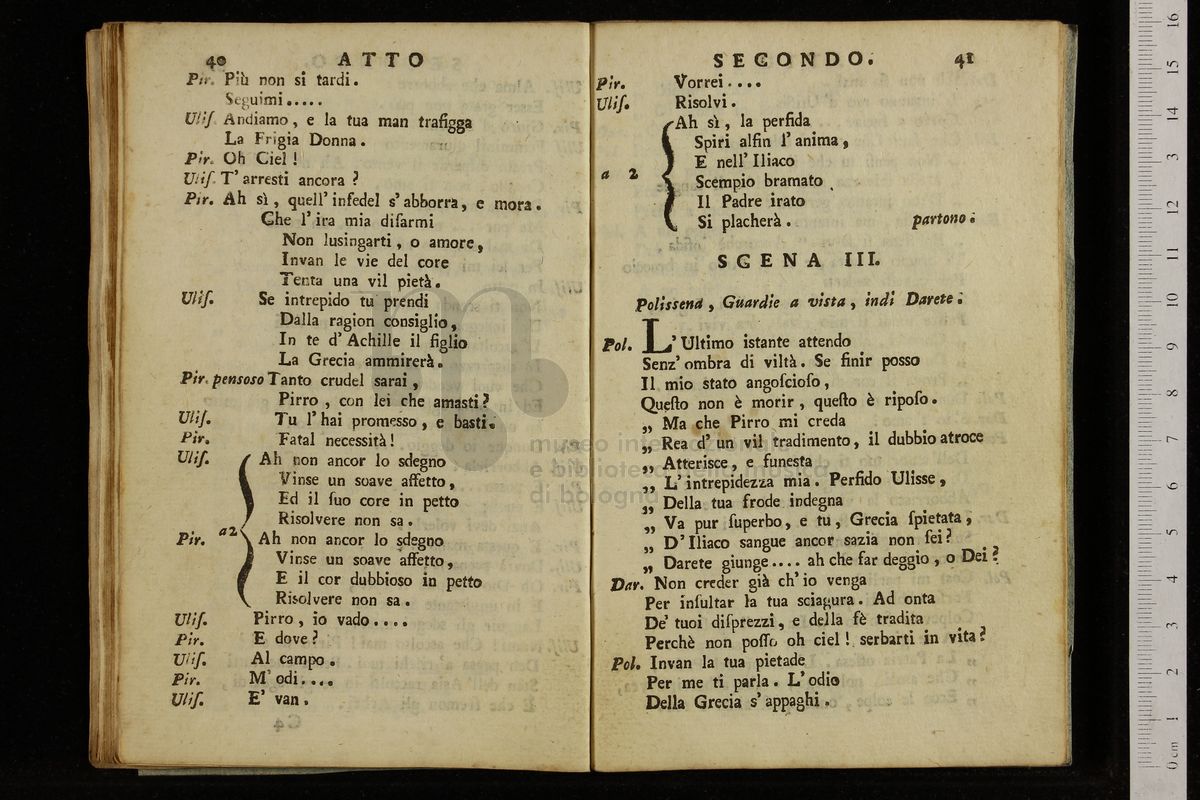 40 ATTO
Pir. Più non si tardi.
Seguimi.....
Ulis. Andiamo, e la tua man trafigga
La Frigia Donna.
Pir. Oh Ciel!
Ulis. T' arresti ancora?
Pir. Ah sì, quell' infedel s' abborra, e mora.
Che l' ira mia disarmi
Non lusingarti, o amore,
Invan le vie del core
Tenta una vil pietà.
Uliſ. Se intrepido tu prendi
Dalla ragion consiglio,
In te d' Achille il figlio
La Grecia ammirerà.
Pir. pensoso Tanto crudel sarai,
Pirro, con lei che amasti?
Uliſ. Tu l' hai promesso, e basti.
Pir. Fatal necessità!
Uliſ. Ah non ancor lo sdegno
Vinse un soave affetto,
Ed il ſuo core in petto
Risolvere non sa.
a2
Pir. Ah non ancor lo sdegno
Vinse un soave affetto,
E il cor dubbioso in petto
Risolvere non sa.
Uliſ. Pirro, io vado....
Pir. E dove?
Uliſ. Al campo.
Pir. M' odi....
Uliſ. E' van.
SECONDO. 41
Pir. Vorrei....
Uliſ. Risolvi.
Ah sì, la perfida
Spiri alfin l' anima,
E nell' Iliaco
a 2 Scempio bramato
Il Padre irato
Si placherà. partono.
SCENA III.
Polissena, Guardie a vista, indi Darete.
Pol. L' Ultimo istante attendo
Senz' ombra di viltà. Se finir posso
Il mio stato angoſcioſo,
Queſto non è morir, queſto è ripoſo.
„ Ma che Pirro mi creda
„ Rea d' un vil tradimento, il dubbio atroce
„ Atterisce, e funesta
„ L' intrepidezza mia. Perfido Ulisse,
„ Della tua frode indegna
„ Va pur ſuperbo, e tu, Grecia ſpietata,
„ D' Iliaco sangue ancor sazia non ſei?
„ Darete giunge.... ah che far deggio, o Dei?
Dar. Non creder già ch' io venga
Per inſultar la tua sciagura. Ad onta
De' tuoi diſprezzi, e della fè tradita
Perchè non poſſo oh ciel! serbarti in vita?
Pol. Invan la tua pietade
Per me ti parla. L' odio
Della Grecia s' appaghi.
museo internazionale
e biblioteca della musica
di bologna